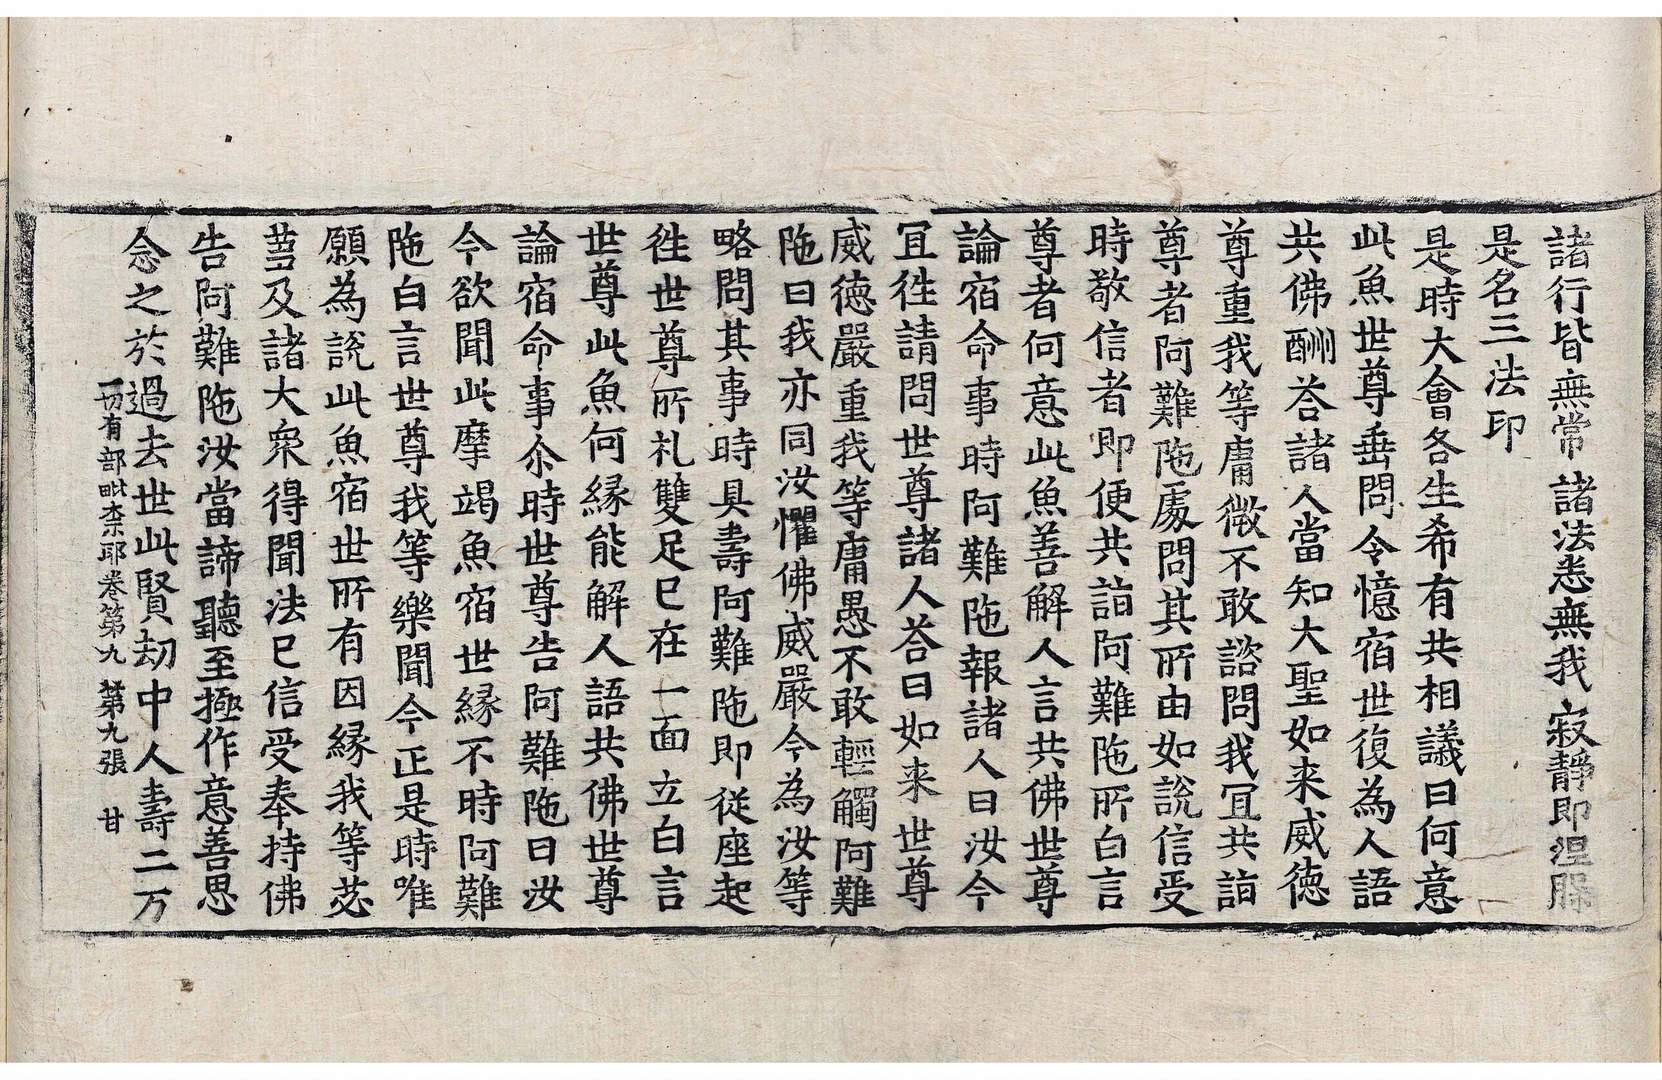 諸行皆無常諸法悉無我寂靜即涅槃
是名三法印
是時大會各生希有共相議曰何意
此魚世尊垂問令憶宿世復為人語
共佛酬荅諸人當知大聖如来威德
尊重我等庸微不敢諮問我冝共詣
尊者阿難陁處問其所由如說信受
時敬信者即便共詣阿難陁所白言
尊者何意此魚善解人言共佛世尊
論宿命事時阿難陁報諸人曰汝今
冝徃請問世尊諸人荅曰如来世尊
威德嚴重我等庸愚不敢輕觸阿難
陁曰我亦同汝懼佛威嚴今為汝等
略問其事時具壽阿難陁即從座起
徃世尊所礼雙足已在一面立白言
世尊此魚何緣能解人語共佛世尊
論宿命事尒時世尊告阿難陁曰汝
今欲聞此摩竭魚宿世緣不時阿難
陁白言世尊我等樂聞今正是時唯
願為說此魚宿世所有因緣我等苾
蒭及諸大衆得聞法已信受奉持佛
告阿難陁汝當諦聽至極作意善思
念之於過去世此賢劫中人壽二万
一切有部毗柰耶卷第九　第九張　甘